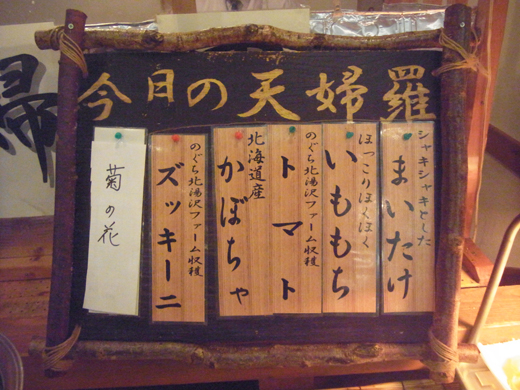 今日の天婦羅
シャキシャキとした
まいたけ
ほっこりほくほく
いももち
のぐち北湯沢ファーム収穫
トマト
北海道産
かぼちゃ
のぐち北湯沢ファーム収穫
ズッキーニ
菊の花
帰